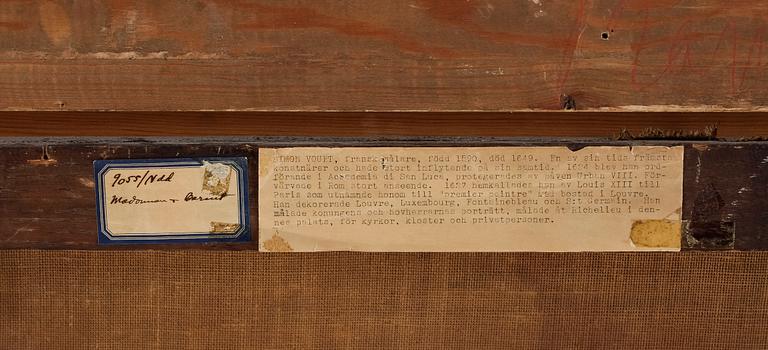 9055/Ndd
Madonnan + Barnet
SIMON VOUET, fransk målare, född 1590, död 1649. En av sin tids främsta
konstnärer och hade stort inflytande på sin samtid. 1624 blev han ord-
förande i Accademia di San Luca, protegerades av påven Urban VIII. För-
värvade i Rom stort anseende. 1627 hemkallades han av Louis XIII till
Paris som utnämnde honom till "premier peintre" med bostad i Louvre.
Han dekorerade Louvre, Luxembourg, Fontainebleau och S:t Germain. Han
målade konungens och hovherrarnas porträtt, målade åt Richelieu i den-
nes palats, för kyrkor, kloster och privatpersoner.